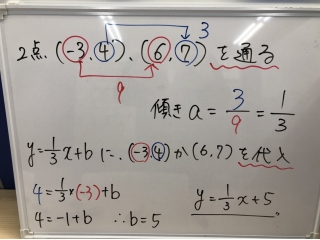 3
2点 (-3, 4)、(6, 7) を通る
9
傾き a = 3/9 = 1/3
y = 1/3 x + b に、(-3, 4) か (6, 7) を代入
4 = 1/3 × (-3) + b
4 = -1 + b ∴ b = 5
y = 1/3 x + 5